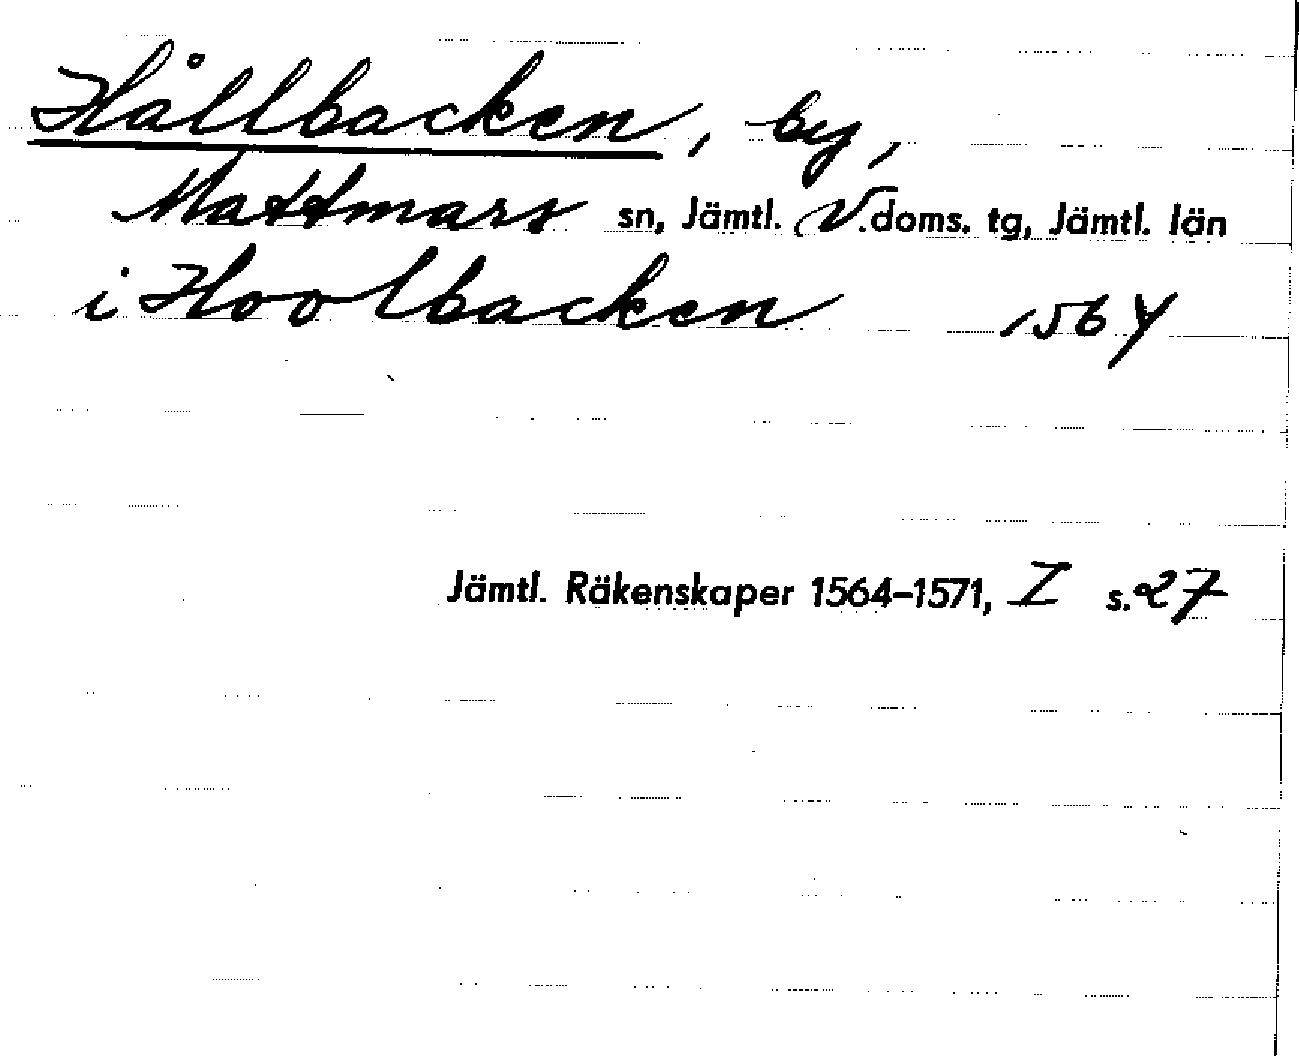 Hållbacken, by,
Mattmars sn, Jämtl. V. doms. tg, Jämtl. län
i Hoolbacken 1564
Jämtl. Räkenskaper 1564–1571, I s. 27